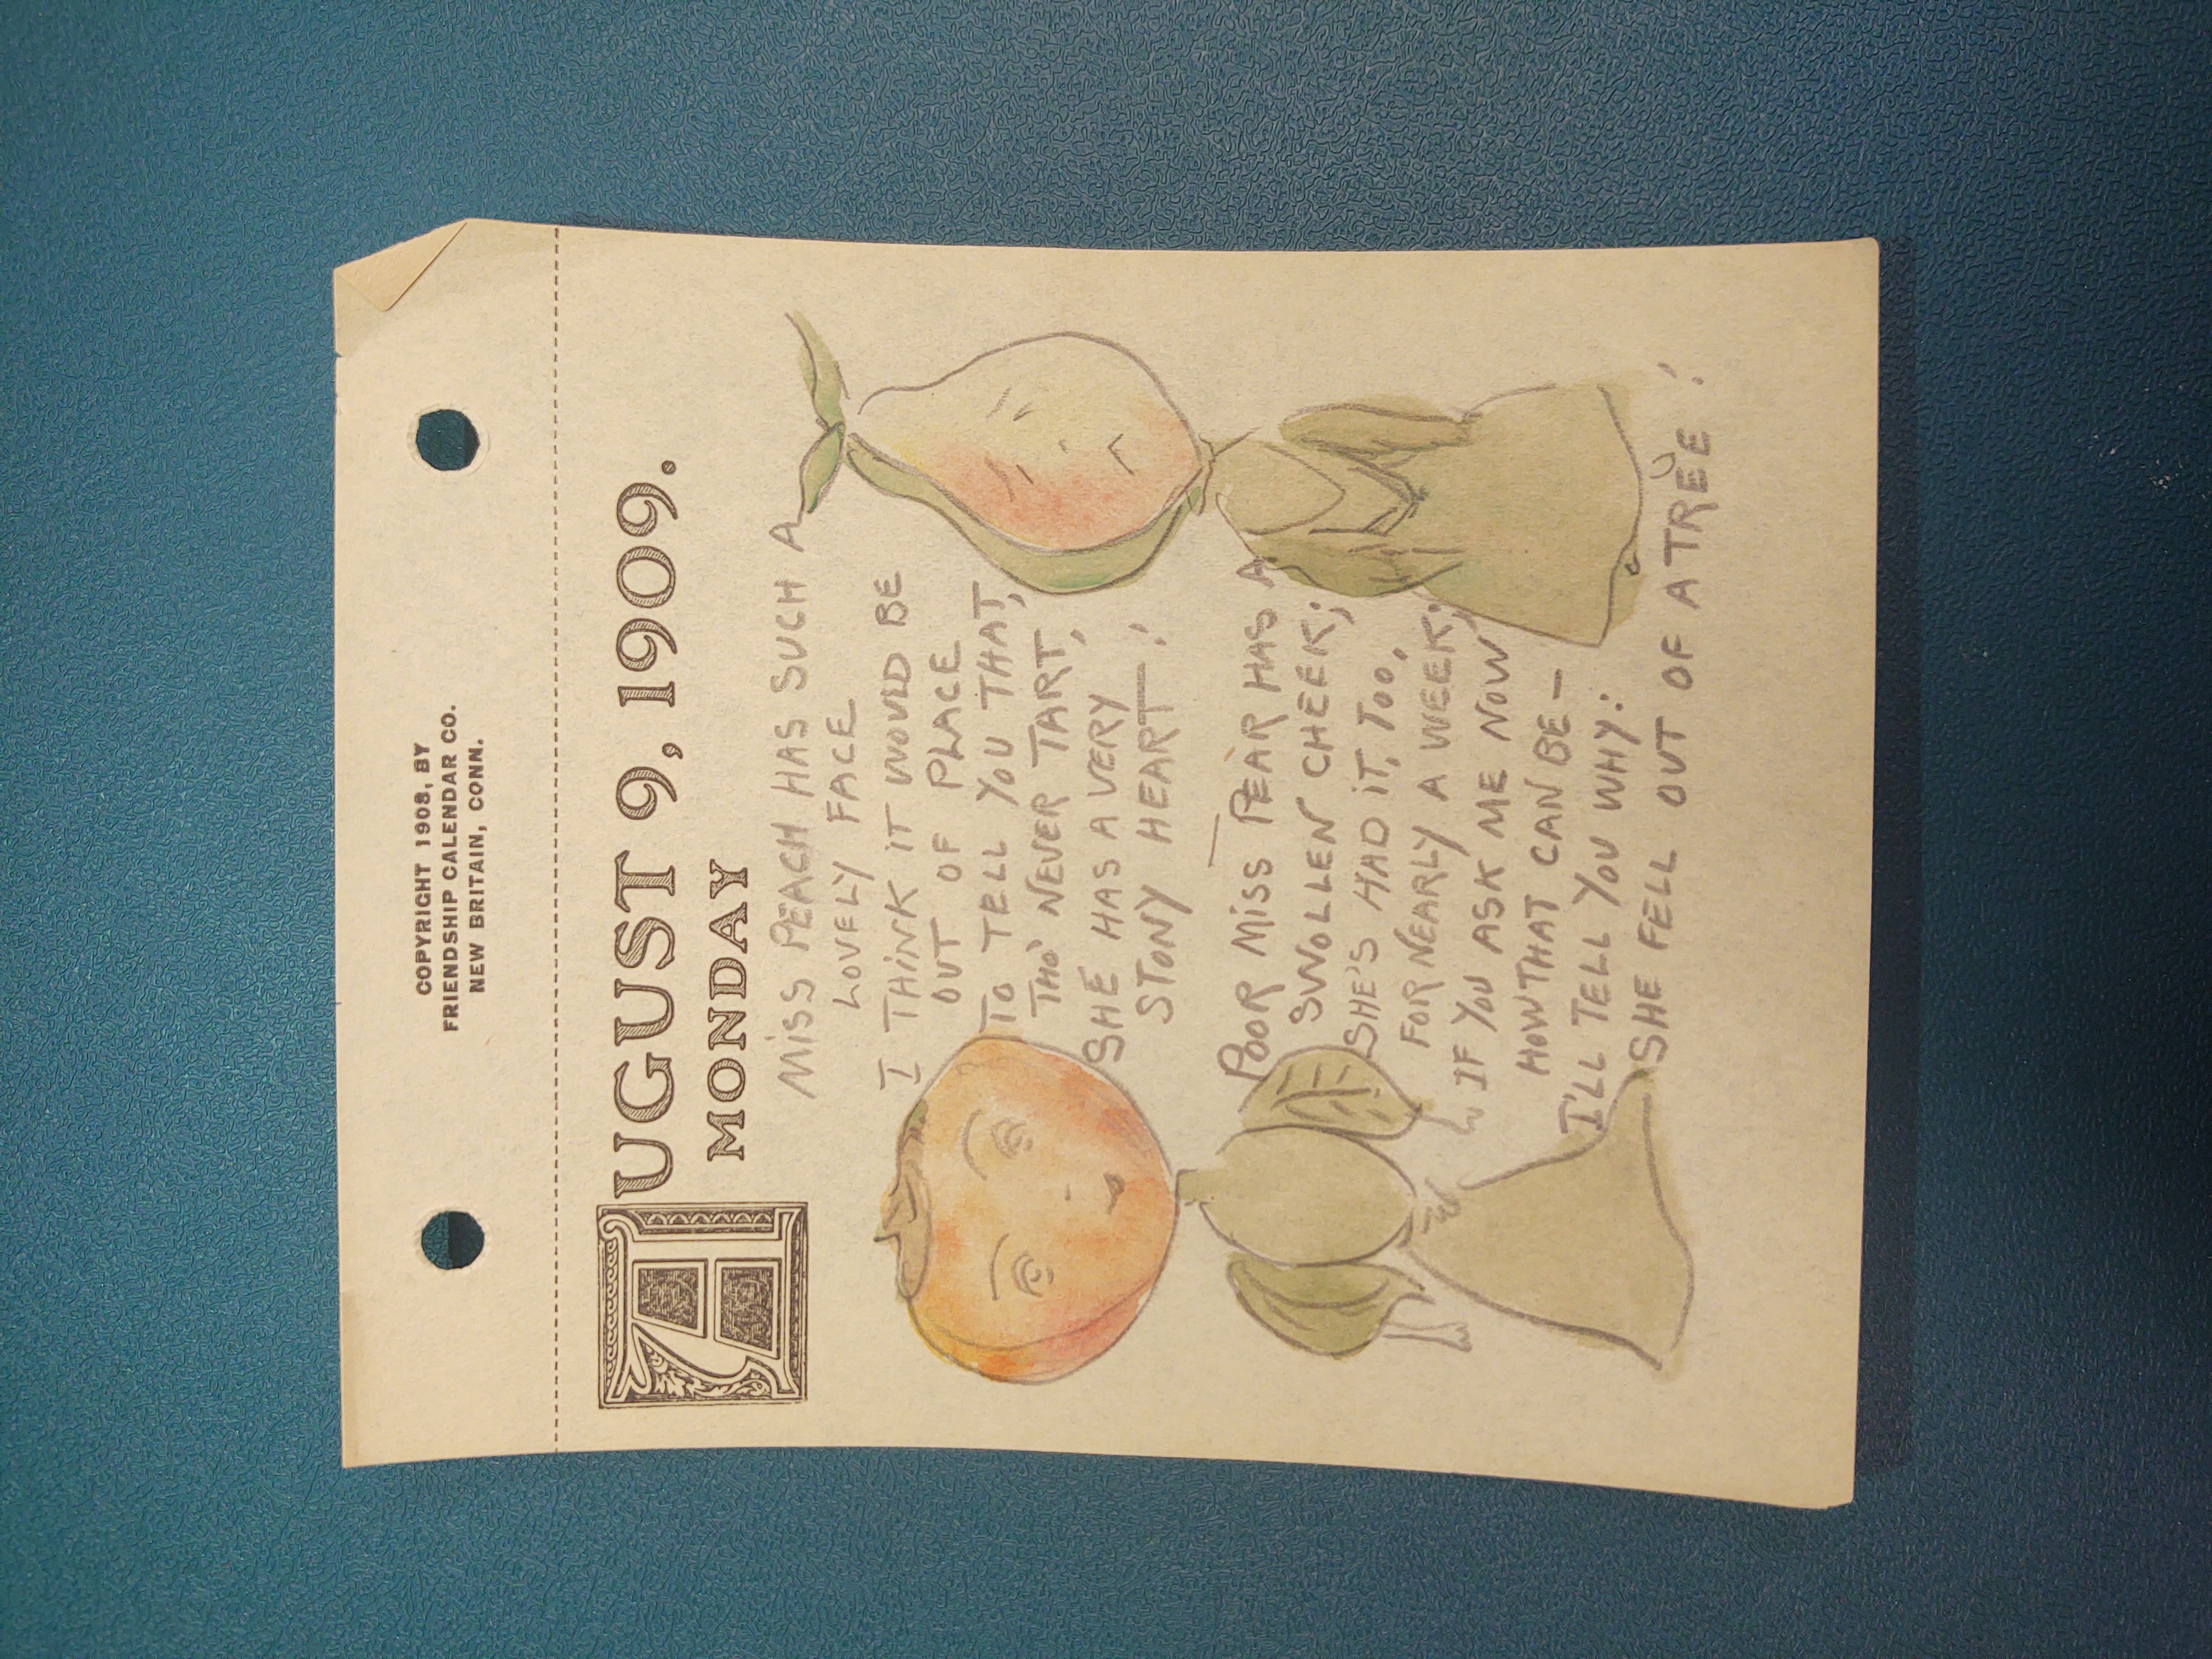 COPYRIGHT 1908, BY
FRIENDSHIP CALENDAR CO.
NEW BRITAIN, CONN.
AUGUST 9, 1909.
MONDAY
MISS PEACH HAS SUCH A
LOVELY FACE
I THINK IT WOULD BE
OUT OF PLACE
TO TELL YOU THAT,
THO' NEVER TART,
SHE HAS A VERY
STONY HEART!
POOR MISS PEAR HAS A
SWOLLEN CHEEK;
SHE'S HAD IT, TOO,
FOR NEARLY A WEEK;
IF YOU ASK ME NOW
HOW THAT CAN BE —
I'LL TELL YOU WHY:
SHE FELL OUT OF A TREE!